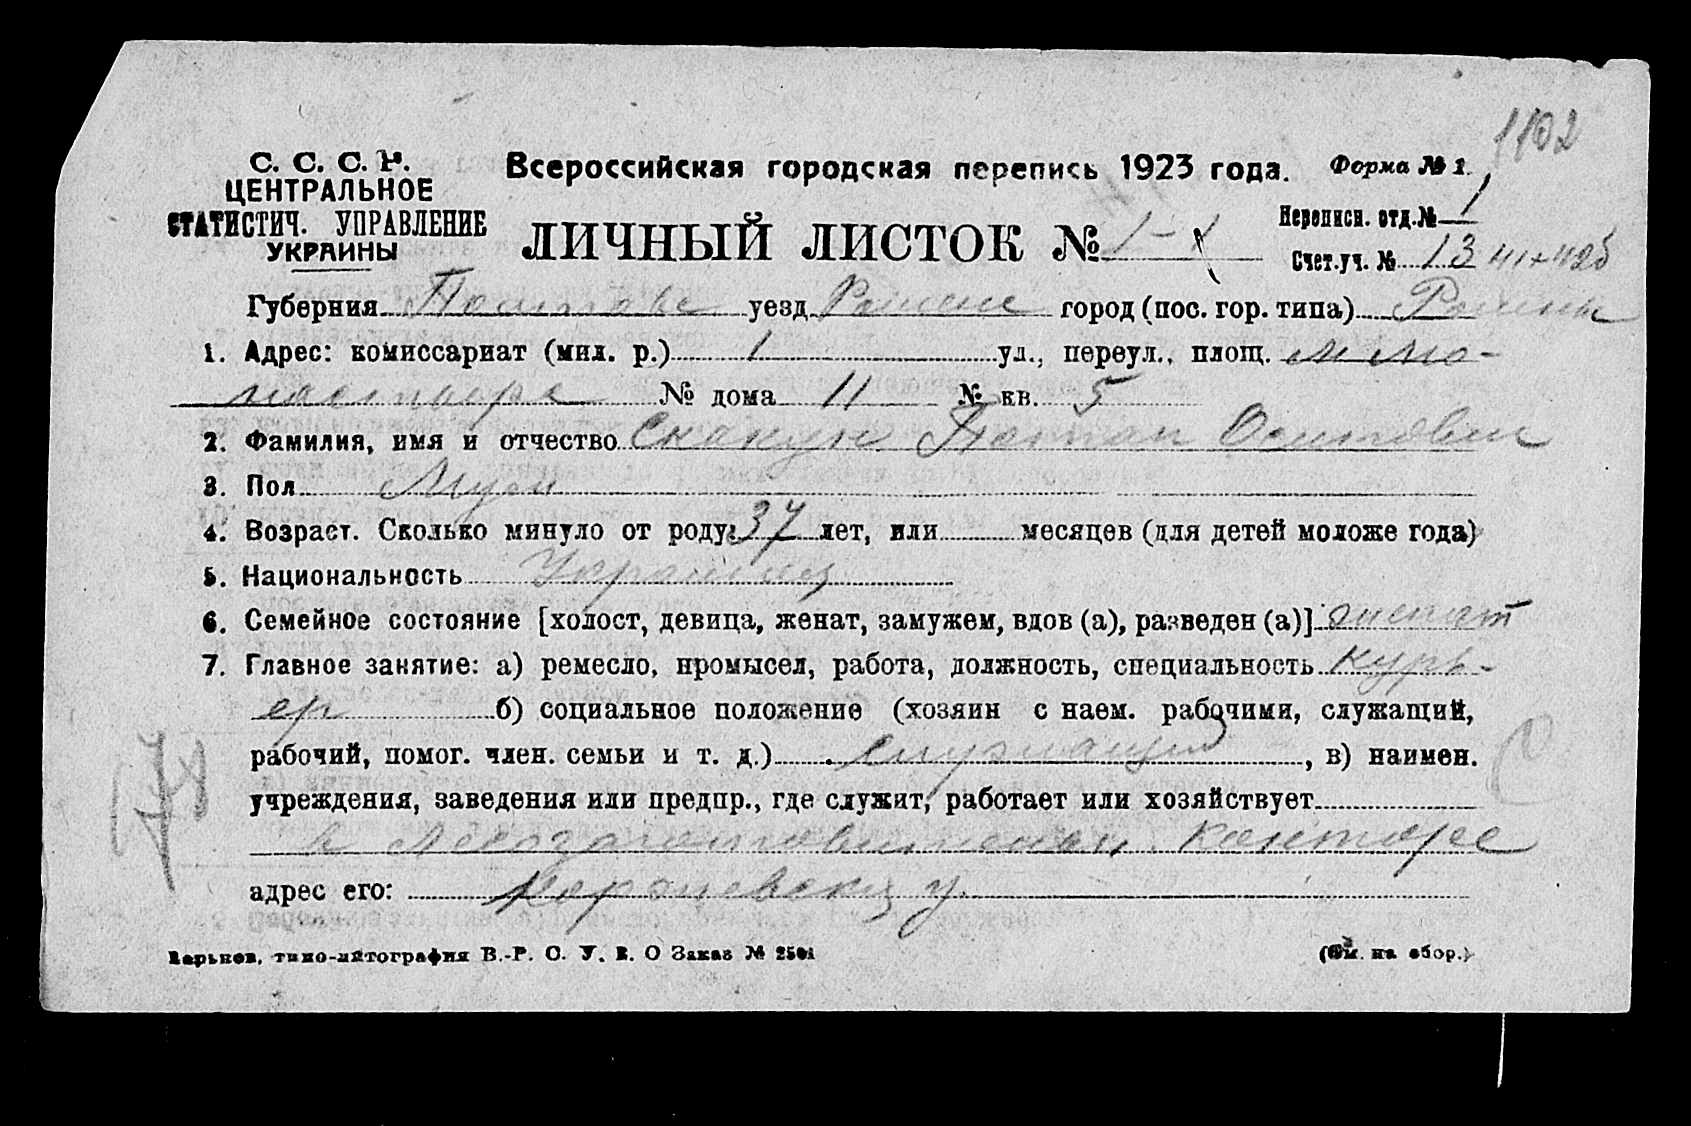 1102
С. С. С. Р.
ЦЕНТРАЛЬНОЕ
СТАТИСТИЧ. УПРАВЛЕНИЕ
УКРАИНЫ
Всероссийская городская перепись 1923 года.
Форма № 1.
ЛИЧНЫЙ ЛИСТОК № 1-
Переписн. отд. № 1
Счет. уч. № 13
Губерния Полтавс уезд Роменс город (пос. гор. типа) Ромны
1. Адрес: комиссариат (мил. р.) 1 ул., переул., площ.
№ дома 11 № кв. 5
2. Фамилия, имя и отчество Скакун Осипович
3. Пол Муж
4. Возраст. Сколько минуло от роду: 37 лет, или месяцев (для детей моложе года)
5. Национальность Украинец
6. Семейное состояние [холост, девица, женат, замужем, вдов (а), разведен (а)] женат
7. Главное занятие: а) ремесло, промысел, работа, должность, специальность курь-
ер б) социальное положение (хозяин с наем. рабочими, служащий,
рабочий, помог. член. семьи и т. д.) служащий, в) наимен.
учреждения, заведения или предпр., где служит, работает или хозяйствует
в Лесозаготовительной Конторе
адрес его:
Харьков, типо-литография В.-Р. О. У. В. О Заказ №
(См. на обор.)